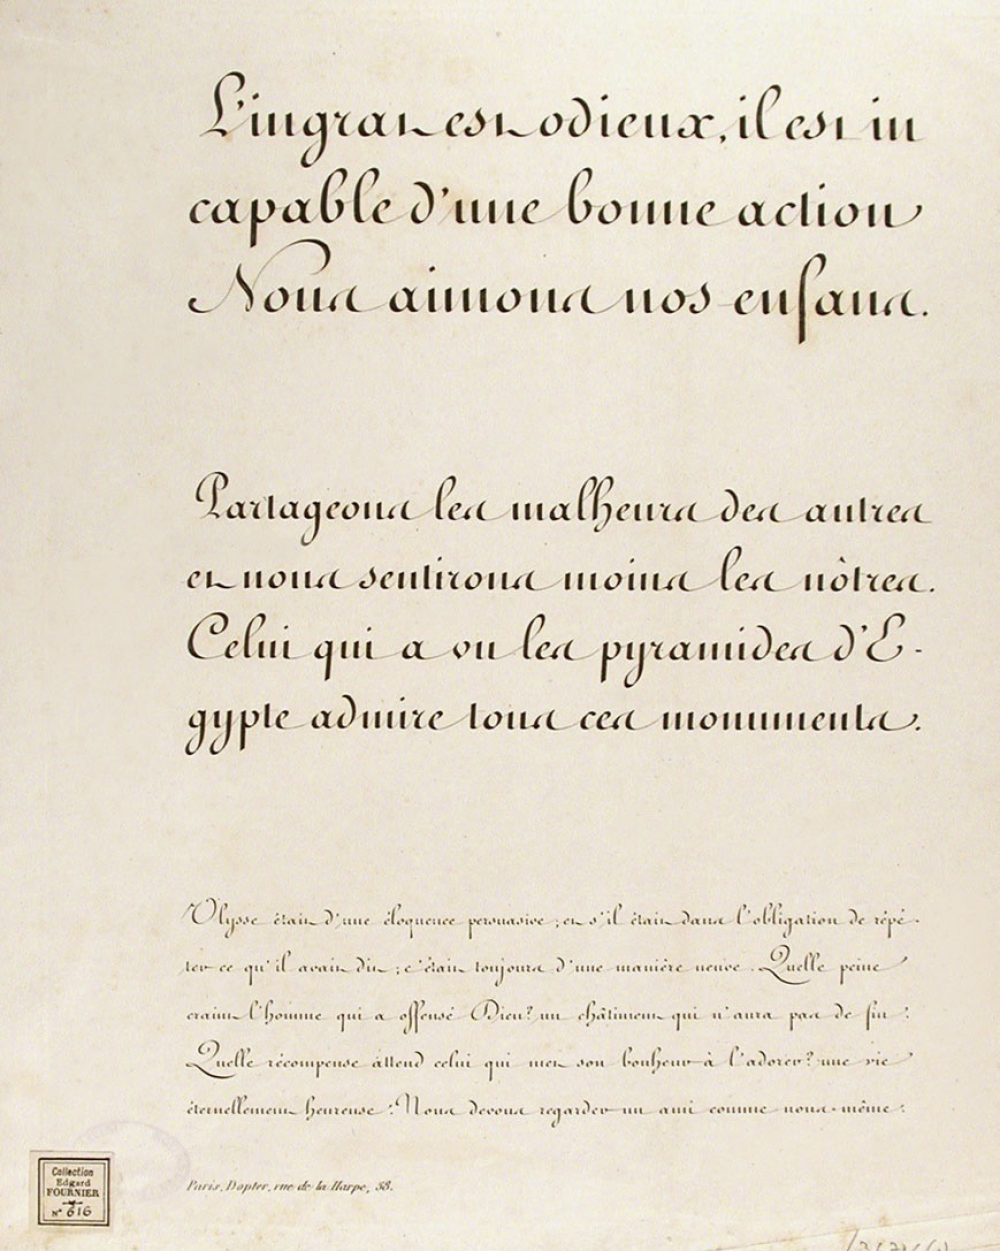 L'ingrat est odieux, il est in
capable d'une bonne action
Nous aimons nos enfans.
Partageons les malheurs des autres
et nous sentirons moins les nôtres.
Celui qui a vu les pyramides d'E-
gypte admire tous ces monuments.
Ulysse était d'une éloquence persuasive; et s'il était dans l'obligation de répé-
ter ce qu'il avait dit; c'était toujours d'une manière neuve. Quelle peine
craint l'homme qui a offensé Dieu? un châtiment qui n'aura pas de fin!
Quelle récompense attend celui qui met son bonheur à l'adorer? une vie
éternellement heureuse! Nous devons regarder un ami comme nous-même.
Paris, Dopter, rue de la Harpe, 58.
Collection
Edgard
FOURNIER
N° 616